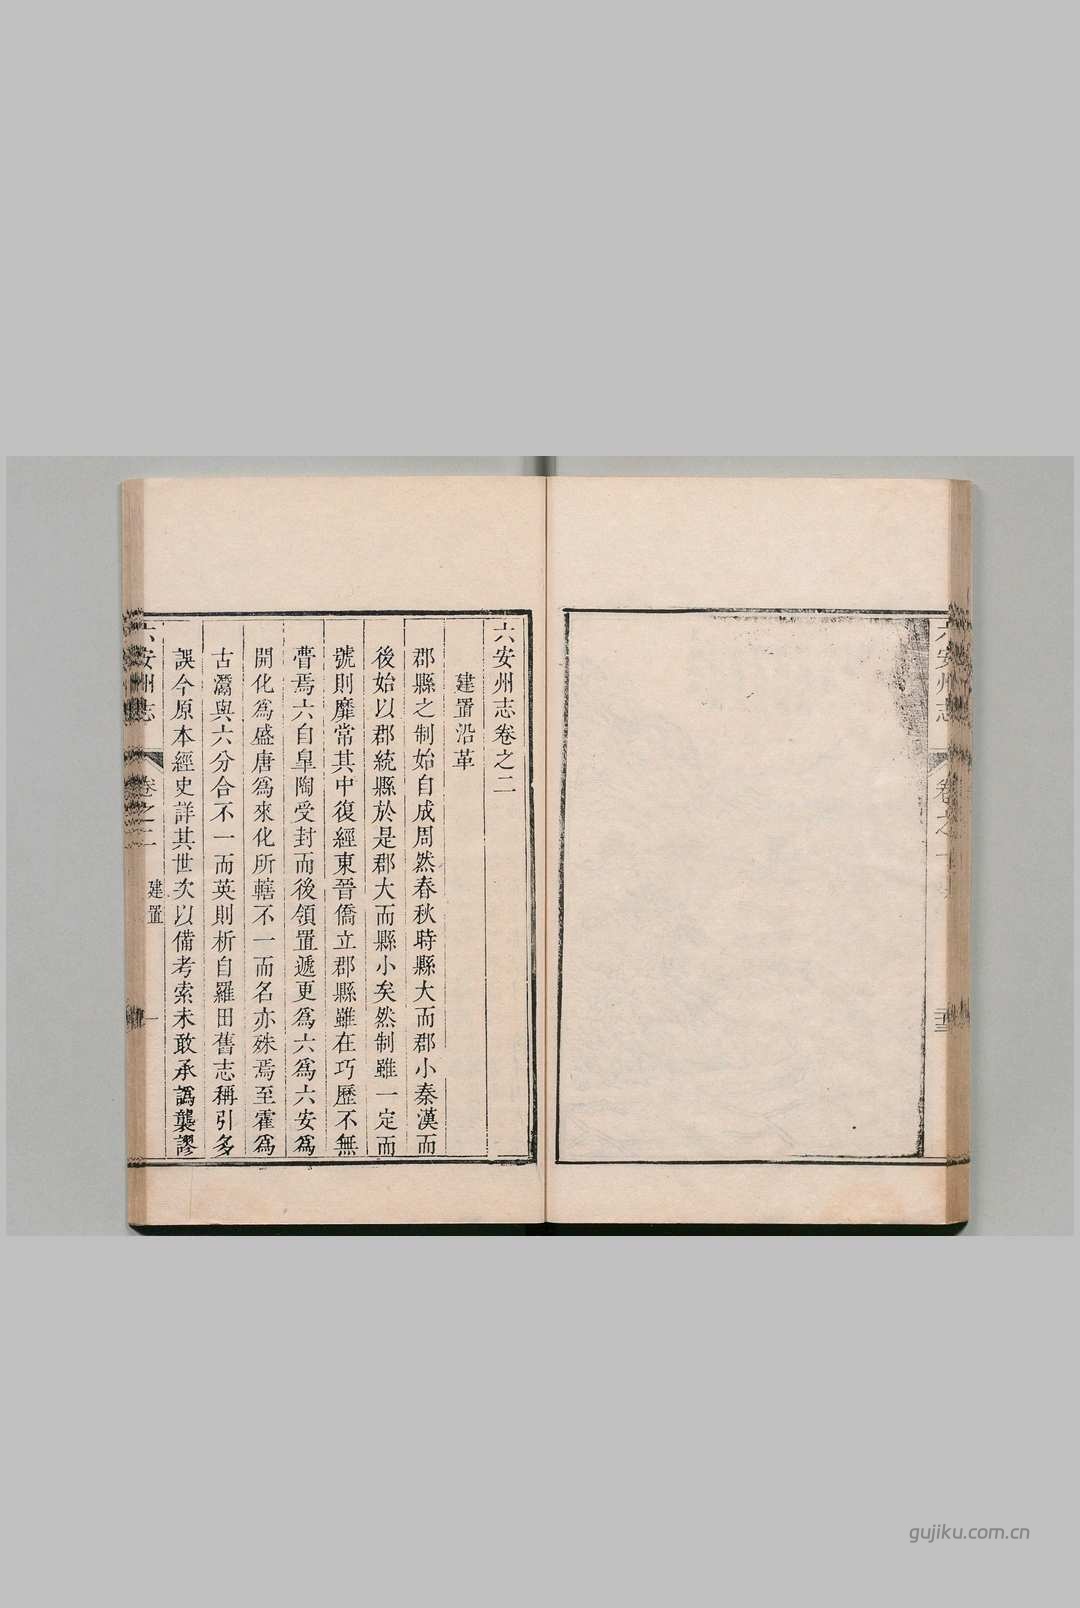 六安州志
卷之
六安州志卷之二
建置沿革
郡縣之制始自成周然春秋時縣大而郡小秦漢而
後始以郡統縣於是郡大而縣小矣然制雖一定而
號則靡常其中復經東晉僑立郡縣雖在巧歷不無
瞢焉六自皐陶受封而後領置遞更爲六爲六安爲
開化爲盛唐爲來化所轄不一而名亦殊焉至霍爲
古灊與六分合不一而英則析自羅田舊志稱引多
誤今原本經史詳其世次以備考索未敢承譌襲謬
六安州志
卷之二
建置
一
gujiku.com.cn